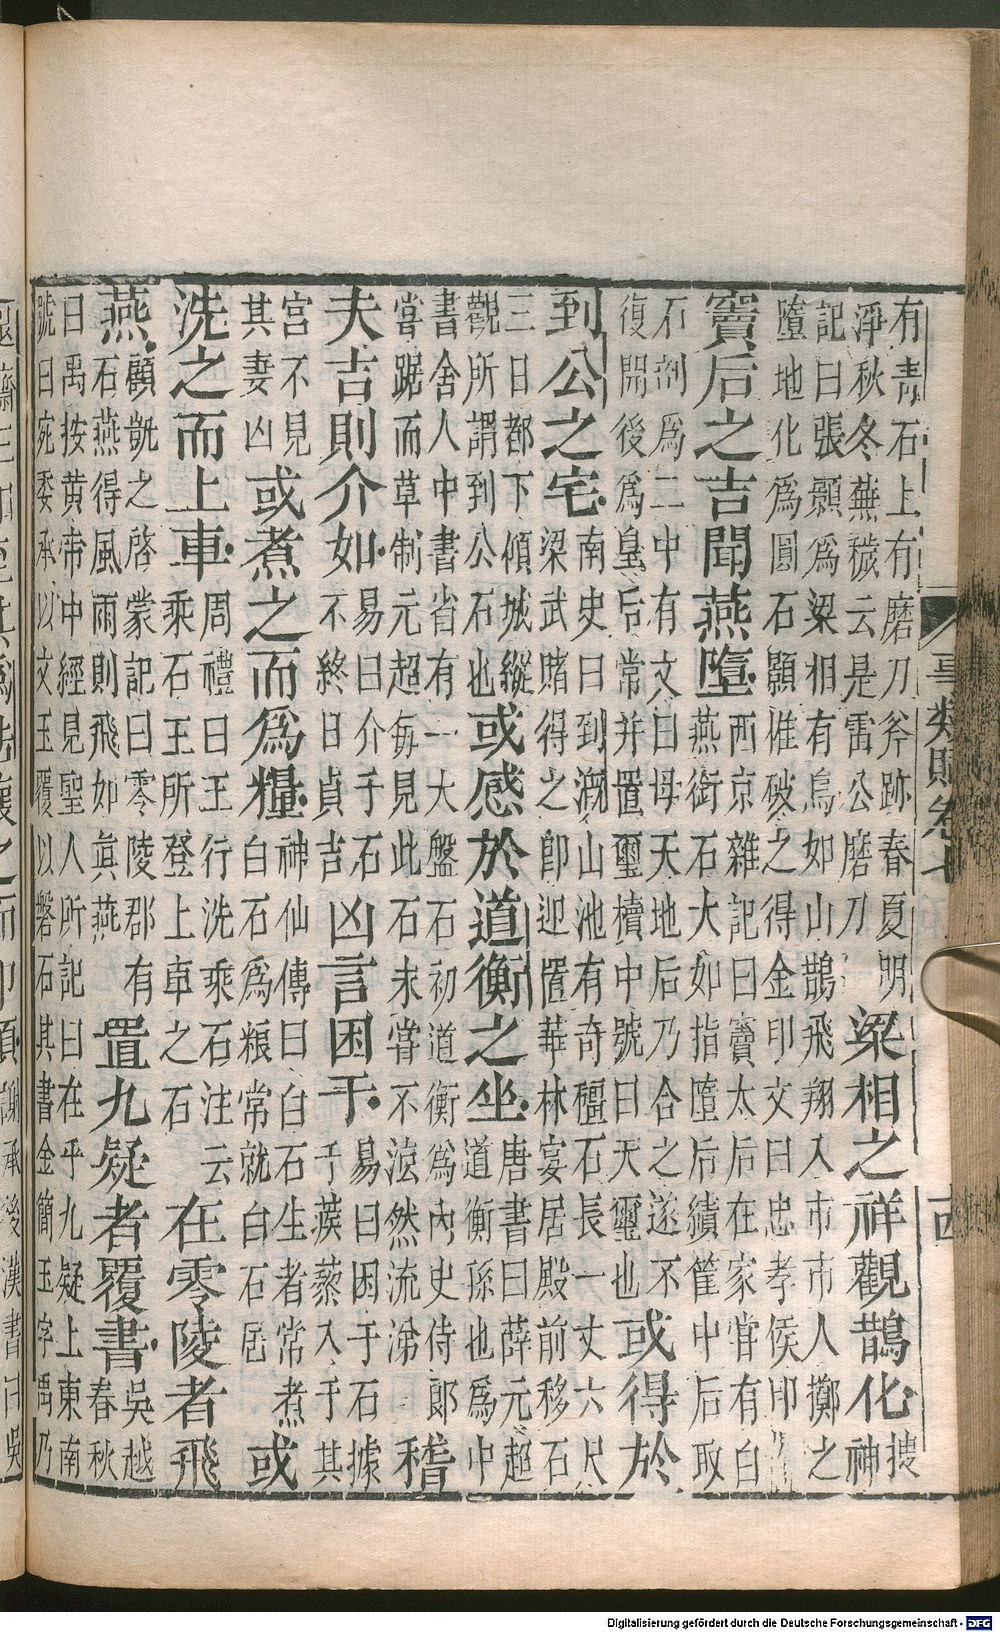 事類賦卷七
有青石上有磨刀斧跡春夏明
淨秋冬蕪穢云是雷公磨刀
梁相之祥觀鵲化
搜
神
記曰張顥為梁相有鳥如山鵲飛翔入市市人擲之
墮地化為圓石顥椎破之得金印文曰忠孝侯印
竇后之吉聞燕墮
西京雜記曰竇太后在家嘗有白
燕銜石大如指墮后績筐中后取
石剖為二中有文曰母天地后乃合之遂不
復開後為皇后常并置璽櫝中號曰天璽也
或得於
到公之宅
南史曰到溉山池有奇礓石長一丈六尺
梁武賭得之即迎置華林宴居殿前移石
三日都下傾城縱
觀所謂到公石也
或感於道衡之坐
唐書曰薛元超
道衡孫也為中
書舍人中書省有一大盤石初道衡為內史侍郎
嘗踞而草制元超每見此石未嘗不泫然流涕
稽
夫吉則介如
易曰介于石
不終日貞吉
凶言困于
易曰困于石據
于蒺蔾入于其
宮不見
其妻凶
或煮之而為糧
神仙傳曰白石生者常煮
白石為粮常就白石居
或
洗之而上車
周禮曰王行洗乘石注云
乘石王所登上車之石
在零陵者飛
燕
顧凱之啓蒙記曰零陵郡有
石燕得風雨則飛如眞燕
置九疑者覆書
吳越
春秋
曰禹按黄帝中經見聖人所記曰在乎九疑上東南
號曰宛委承以文玉覆以磐石其書金簡玉字禹乃
謝承後漢書曰吳
Digitalisierung gefördert durch die Deutsche Forschungsgemeinschaft - DFG